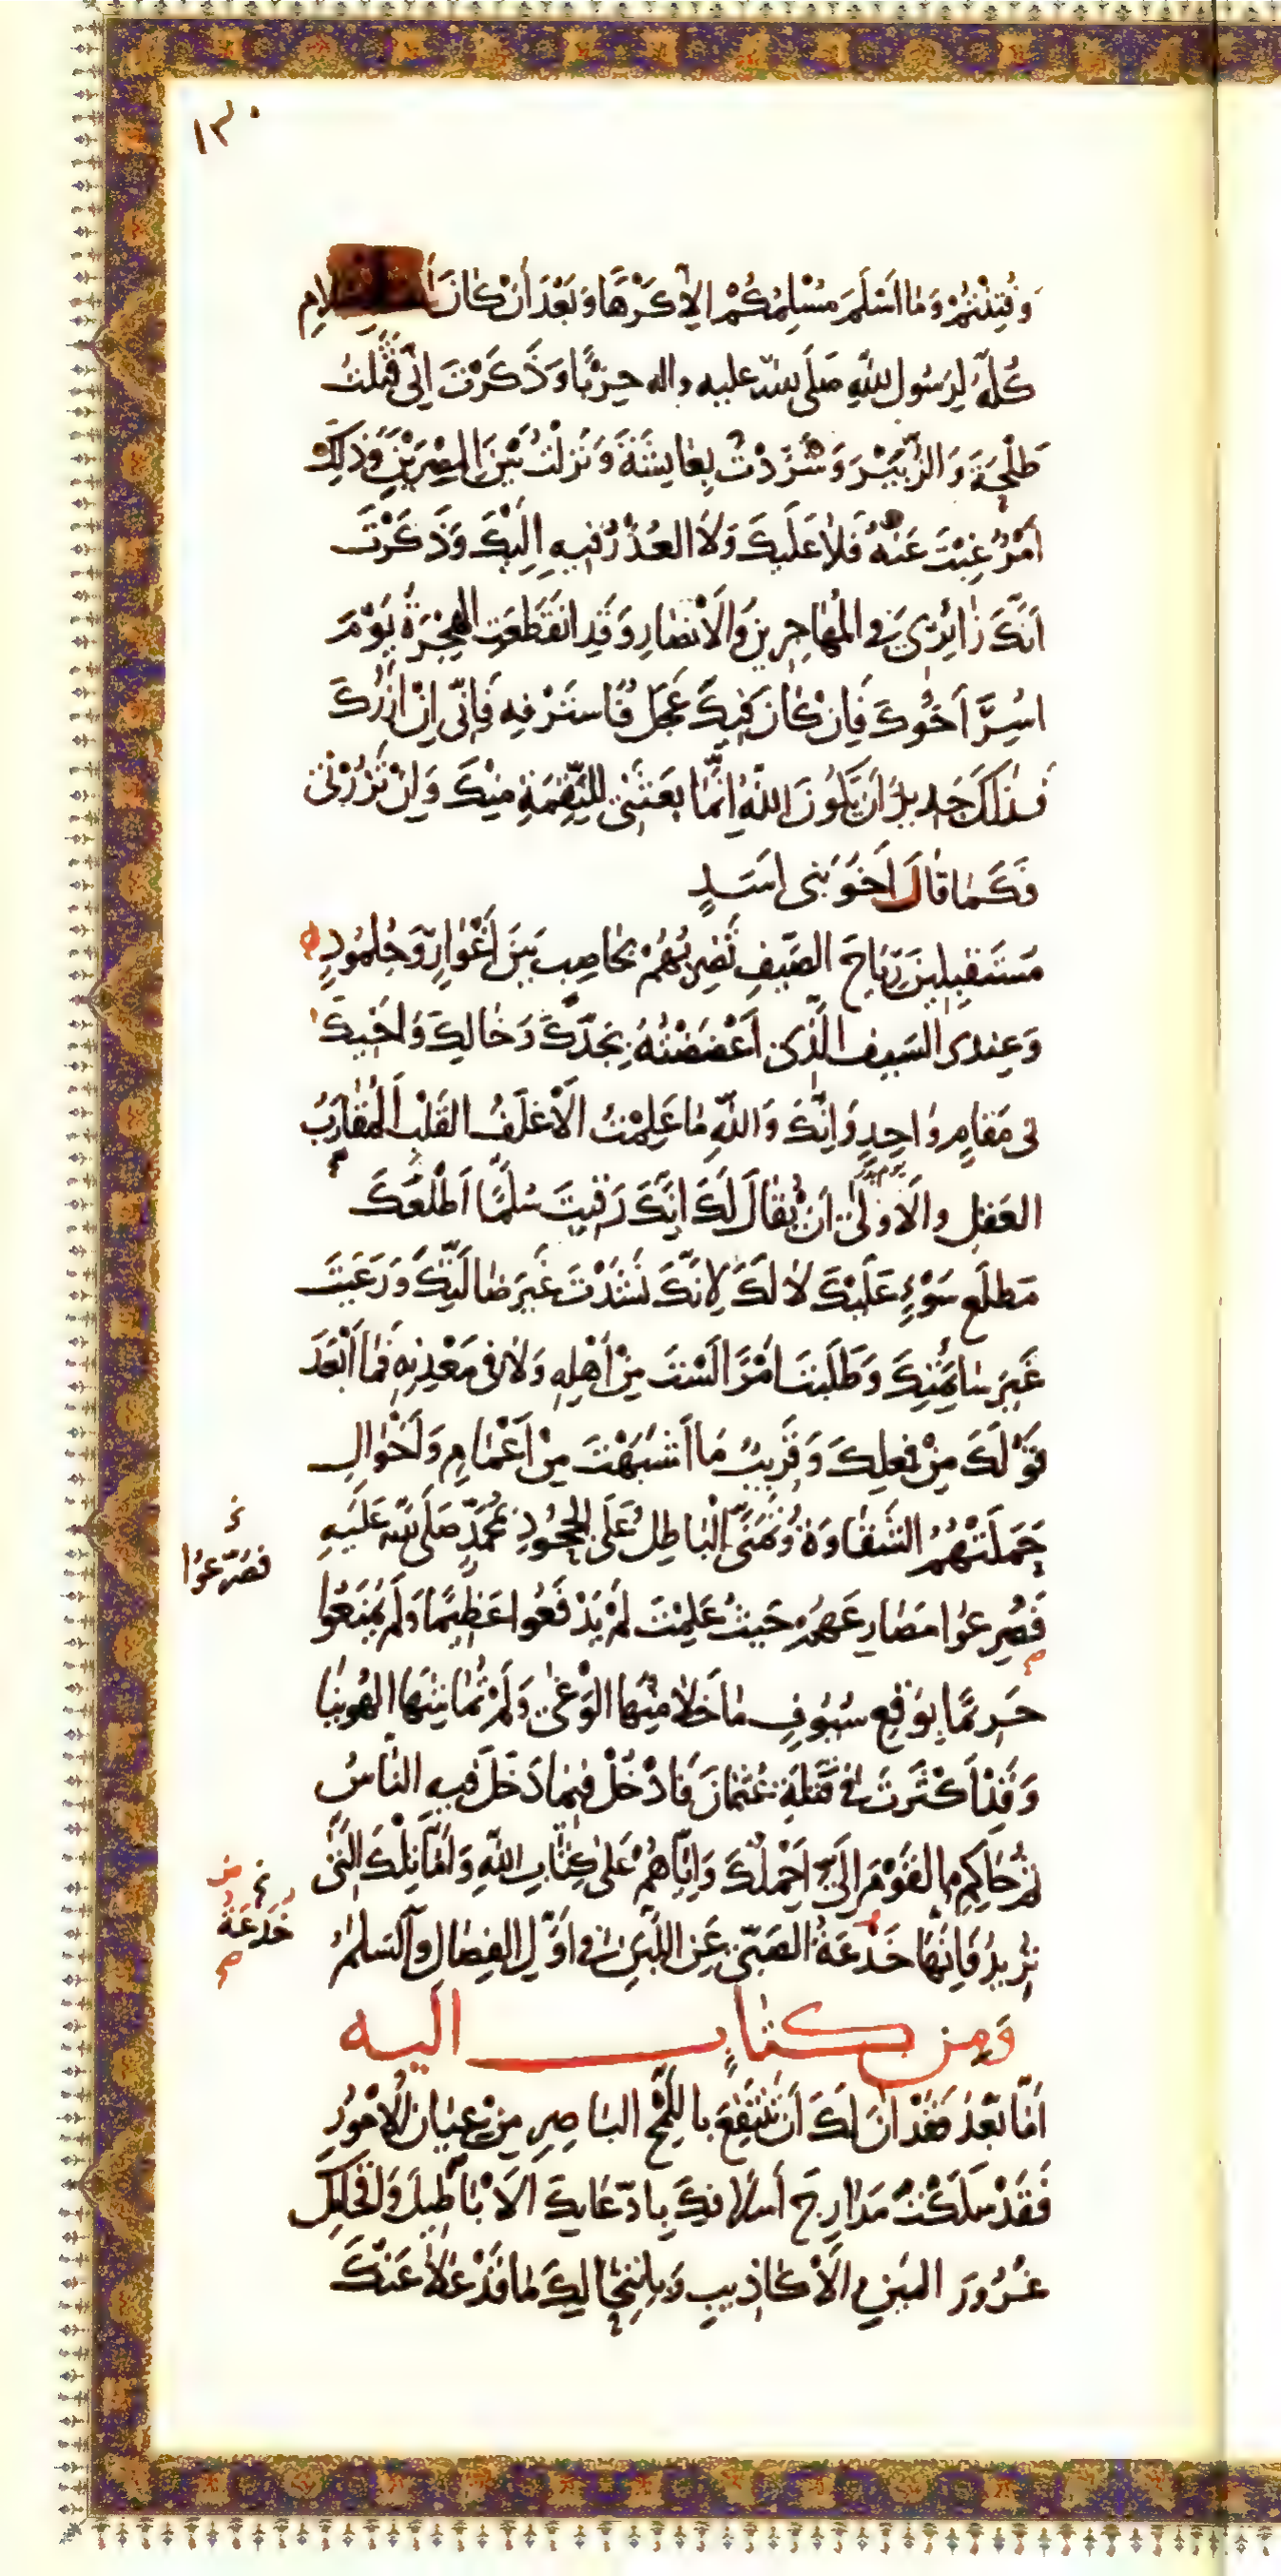 ١٣٠
وَفُتِنْتُمْ وَمَا اَسْلَمَ مُسْلِمُكُمْ اِلَّا كَرْهًا وَبَعْدَ اَنْ كَانَ
كُلُّهُ لِرَسُولِ اللّهِ صَلَّى اللّه عليه واله حِزْبًا وَذَكَرْتَ اِنّى قَتَلْتُ
طَلْحَةَ وَالزُّبَيْرَ وَشَرَّدْتُ بِعَايِشَةَ وَنَزَلْتُ بَيْنَ المِصْرَيْنِ وَذٰلِكَ
اَمْرٌ غِبْتَ عَنْهُ فَلَا عَلَيْكَ وَلَا العُذْرُ فيهِ اِلَيْكَ وَذَكَرْتَ
اَنَّكَ زَائِرِى فى المُهَاجِرِينَ وَالْاَنْصَارِ وَقَدِ انْقَطَعَتِ الهِجْرَةُ يَوْمَ
اُسِرَ اَخُوكَ فَاِنْ كَانَ فيكَ عَجَلٌ فَاسْتَرْفِهِ فَاِنّى اِنْ اَزُرْكَ
فَذٰلِكَ جَدِيرٌ اَنْ يَكُونَ اللّهُ اِنَّمَا بَعَثَنى لِلنَّقِمَةِ مِنْكَ وَاِنْ تَزُرْنى
فَكَمَا قَالَ اَخُو بَنى اَسَدٍ
مُسْتَقْبِلِينَ رِيَاحَ الصَّيْفِ تَضْرِبُهُمْ بِحَاصِبٍ بَيْنَ اَغْوَارٍ وَجُلمُودِ
وَعِنْدى السَيفُ الَّذى اَعْضَضْتُهُ بِجَدِّكَ وَخَالِكَ وَاَخيكَ
فى مَقَامٍ وَاحِدٍ وَاِنَّكَ وَاللّهِ مَا عَلِمْتُ الْاَغْلَفُ القَلْبِ المُقَارَبُ
العَقلِ والْاَوْلىٰ اَنْ يُقَالَ لَكَ اِنَّكَ رَقيتَ سُلَّمًا اَطْلَعَكَ
مَطْلَعَ سَوْءٍ عَلَيْكَ لَا لَكَ لِاَنَّكَ نَشَدْتَ غَيْرَ ضَالَّتِكَ وَرَعَيْتَ
غَيْرَ سَائِمَتِكَ وَطَلَبْتَ اَمْرًا لَسْتَ مِنْ اَهْلِهِ وَلَا فى مَعْدِنِهِ فَمَا اَبْعَدَ
قَوْلَكَ مِنْ فِعلِكَ وَقَرِيبٌ مَا اَشْبَهْتَ مِنْ اَعْمَامٍ وَاَخْوَالٍ
حَمَلَتْهُمُ الشَّقَاوَةُ وَتَمَنّى الْبَاطِلِ عَلَى الجُحُودِ بِمُحَمَّدٍ صَلّى اللّه عَلَيهِ
فَصُرِّعُوا
فَصُرِعوا مَصَارِعَهُمْ حَيثُ عَلِمْتَ لَمْ يَدْفَعُوا عَظِيمًا وَلَمْ يَمْنَعُوا
حَرِيمًا بِوَقْعِ سُيُوفٍ مَا خَلَا مِنْهَا الوَغىٰ وَلَمْ تُمَاشِهَا الهُوَينَا
وَقَدْ اَكْثَرْتَ فى قَتَلَةِ عُثمَانَ فَادْخُلْ فيمَا دَخَلَ فيهِ النَّاسُ
ثُمَّ حَاكِمِ القَوْمَ اِلَىَّ اَحْمِلْكَ وَاِيَّاهُمْ عَلىٰ كِتَابِ اللّهِ وَاَمَّا تِلْكَ الَّتى
خَدْعَةَ
تُرِيدُ فَاِنَّهَا خَدْعَةُ الصَّبِىِّ عَنِ اللَّبَنِ فى اَوَّلِ الفِصَالِ وَالسَّلَامُ
وَمِنْ كِتَابٍ اليه
اَمَّا بَعْدُ فَقَدْ انَ لَكَ اَنْ تَنْتَفِعَ بِاللَّمْحِ البَاصِرِ مِنْ عِيَانِ الْاُمُورِ
فَقَدْ سَلَكْتَ مَدَارِجَ اَسْلَافِكَ بِادِّعَائِكَ الْاَبَاطِيلَ وَاقْتِحَامِكَ
غُرُورَ المَيْنِ وَالْاَكَاذِيبِ وَبِانْتِحَالِكَ مَا قَدْ عَلَا عَنْكَ